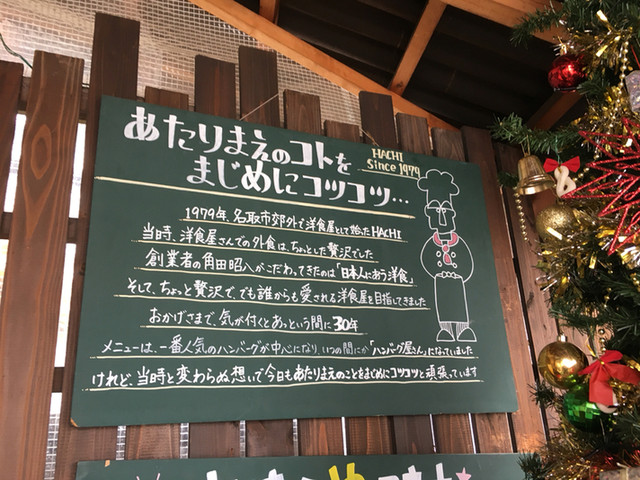 あたりまえのコトを
まじめにコツコツ…
HACHI
Since 1979
1979年、名取市郊外で洋食屋として始ったHACHI
当時、洋食屋さんでの外食は、ちょっとした贅沢でした
創業者の角田昭八がこだわってきたのは「日本人にあう洋食」
そして、ちょっと贅沢で、でも誰からも愛される洋食屋を目指してきました
おかげさまで、気が付くとあっという間に30年
メニューは、一番人気のハンバーグが中心になり、いつの間にか「ハンバーグ屋さん」になっていました
けれど、当時と変わらぬ想いで今日もあたりまえのことをまじめにコツコツと頑張っています